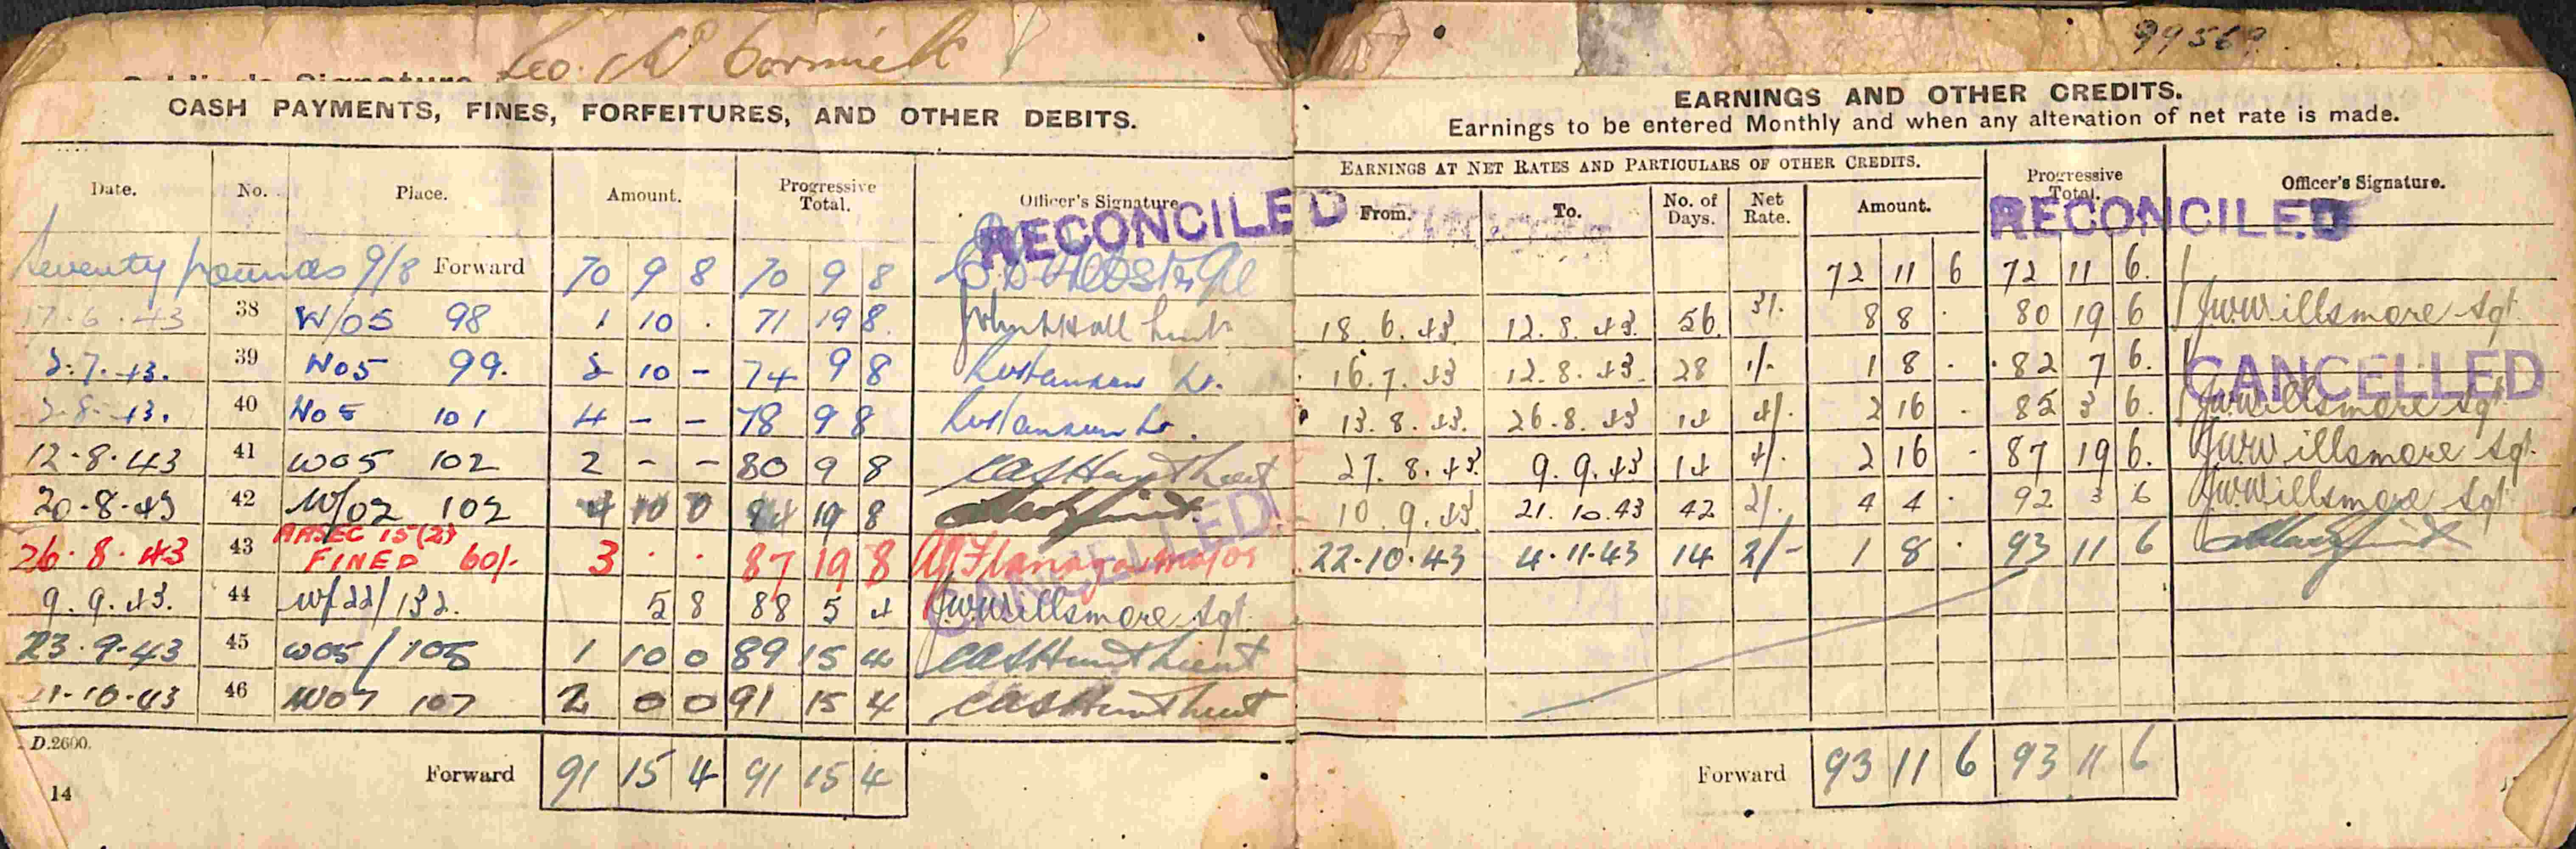 Leo. McCormick
99569
CASH PAYMENTS, FINES, FORFEITURES, AND OTHER DEBITS.
Date. No. Place. Amount. Progressive Total. Officer's Signature
RECONCILED
Seventy pounds 9/8 Forward 70 9 8 70 9 8
17.6.43 38 W/05 98 1 10 . 71 19 8.
.7.43. 39 W05 99. 10 - 74 9 8 Lt.
.8.43. 40 W05 101 4 - - 78 9 8 Lt.
12-8-43 41 W05 102 2 - - 80 9 8 Lieut
20-8-43 42 W/02 102 4 10 0 84 19 8
AASEC 15(2)
26.8.43 43 FINED 60/- 3 . . 87 19 8 Major
9.9.43. 44 W/22/132. 5 8 88 5 4 JWWillsmore Sgt.
23-9-43 45 W05/105 1 10 0 89 15 4 CASHunt Lieut
21-10-43 46 W07 107 2 0 0 91 15 4 CASHunt Lieut
CANCELLED
D.2600.
Forward 91 15 4 91 15 4
14
EARNINGS AND OTHER CREDITS.
Earnings to be entered Monthly and when any alteration of net rate is made.
EARNINGS AT NET RATES AND PARTICULARS OF OTHER CREDITS.
From. To. No. of Days. Net Rate. Amount. Progressive Total. Officer's Signature.
RECONCILED
72 11 6 72 11 6.
18.6.43. 12.8.43. 56. 3/. 8 8 . 80 19 6 JWWillsmore Sgt.
16.7.43 12.8.43. 28 1/- 1 8 . 82 7 6.
CANCELLED
13.8.43. 26.8.43 14 4/. 2 16 . 85 3 6. JWWillsmore Sgt.
27.8.43. 9.9.43 14 4/. 2 16 - 87 19 6. JWWillsmore Sgt.
10.9.43 21.10.43 42 2/. 4 4 . 92 3 6 JWWillsmore Sgt.
22-10-43 4-11-43 14 2/- 1 8 . 93 11 6
Forward 93 11 6 93 11 6